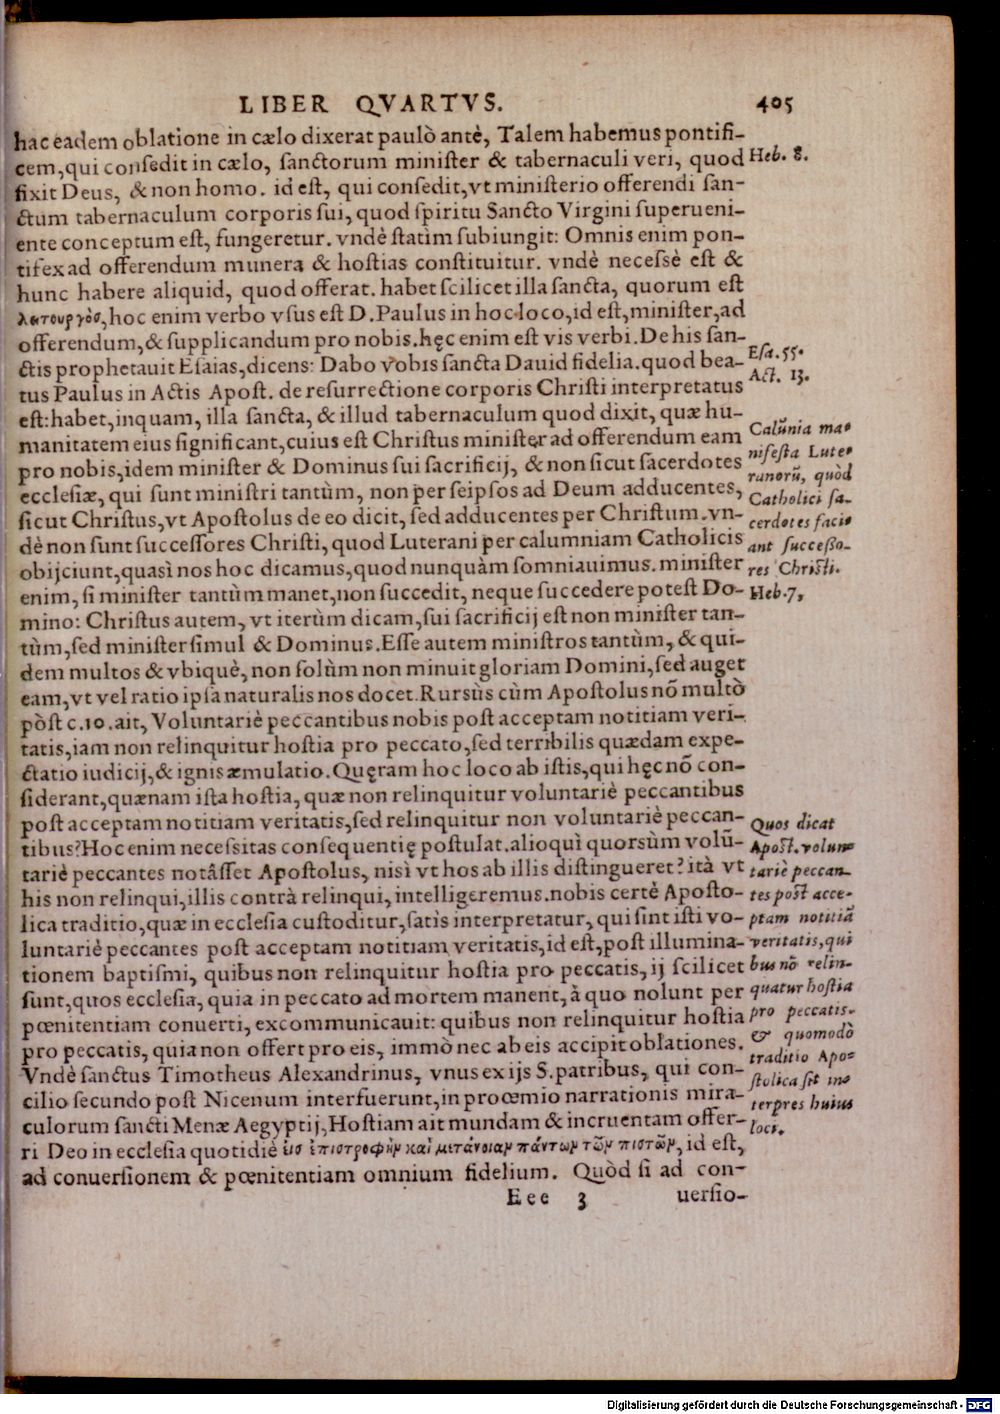 LIBER QVARTVS. 405
hac eadem oblatione in cælo dixerat paulò antè, Talem habemus pontifi-
cem,qui consedit in cælo, sanctorum minister & tabernaculi veri, quod
fixit Deus, & non homo. id est, qui consedit,vt ministerio offerendi san-
ctum tabernaculum corporis sui, quod spiritu Sancto Virgini superueni-
ente conceptum est, fungeretur. vndè statim subiungit: Omnis enim pon-
tifex ad offerendum munera & hostias constituitur. vndè necessè est &
hunc habere aliquid, quod offerat. habet scilicet illa sancta, quorum est
λειτουργὸς,hoc enim verbo vsus est D. Paulus in hoc loco,id est,minister,ad
offerendum,& supplicandum pro nobis.hęc enim est vis verbi. De his san-
ctis prophetauit Esaias,dicens: Dabo vobis sancta Dauid fidelia.quod bea-
tus Paulus in Actis Apost. de resurrectione corporis Christi interpretatus
est:habet,inquam, illa sancta, & illud tabernaculum quod dixit, quæ hu-
manitatem eius significant,cuius est Christus minister ad offerendum eam
pro nobis,idem minister & Dominus sui sacrificij, & non sicut sacerdotes
ecclesiæ, qui sunt ministri tantùm, non per seipsos ad Deum adducentes,
sicut Christus,vt Apostolus de eo dicit, sed adducentes per Christum.vn-
dè non sunt successores Christi, quod Luterani per calumniam Catholicis
obijciunt,quasì nos hoc dicamus,quod nunquàm somniauimus. minister
enim, si minister tantùm manet,non succedit, neque succedere potest Do-
mino: Christus autem, vt iterùm dicam,sui sacrificij est non minister tan-
tùm,sed minister simul & Dominus.Esse autem ministros tantùm, & qui-
dem multos & vbiquè, non solùm non minuit gloriam Domini,sed auget
eam,vt vel ratio ipsa naturalis nos docet.Rursùs cùm Apostolus nõ multò
pòst c.10.ait, Voluntariè peccantibus nobis post acceptam notitiam veri-
tatis,iam non relinquitur hostia pro peccato,sed terribilis quædam expe-
ctatio iudicij,& ignis æmulatio.Quęram hoc loco ab istis,qui hęc nõ con-
siderant,quænam ista hostia, quæ non relinquitur voluntariè peccantibus
post acceptam notitiam veritatis,sed relinquitur non voluntariè peccan-
tibus?Hoc enim necessitas consequentię postulat.alioquì quorsùm volũ-
tariè peccantes notâsset Apostolus, nisì vt hos ab illis distingueret? ità vt
his non relinqui,illis contrà relinqui,intelligeremus.nobis certè Aposto-
lica traditio,quæ in ecclesia custoditur,satìs interpretatur, qui sint isti vo-
luntariè peccantes post acceptam notitiam veritatis,id est,post illumina-
tionem baptismi, quibus non relinquitur hostia pro peccatis, ij scilicet
sunt,quos ecclesia, quia in peccato ad mortem manent, à quo nolunt per
pœnitentiam conuerti, excommunicauit: quibus non relinquitur hostia
pro peccatis, quia non offert pro eis, immò nec ab eis accipit oblationes.
Vndè sanctus Timotheus Alexandrinus, vnus ex ijs S.patribus, qui con-
cilio secundo post Nicenum interfuerunt,in procemio narrationis mira-
culorum sancti Menæ Aegyptij,Hostiam ait mundam & incruentam offer-
ri Deo in ecclesia quotidiè εἰς ἐπιστροφὴν καὶ μετάνοιαν πάντων τῶν πιστῶν, id est,
ad conuersionem & pœnitentiam omnium fidelium. Quòd si ad con-
Eee 3 uersio-
Heb. 8.
Esa. 55.
Act. 13.
Calũnia ma-
nifesta Lute-
ranorũ, quòd
Catholici sa-
cerdotes faci-
ant successo-
res Christi.
Heb.7,
Quos dicat
Apost. volun-
tariè peccan-
tes post acce-
ptam notitiã
veritatis,qui
bus nõ relin-
quatur hostia
pro peccatis.
& quomodò
traditio Apo-
stolica sit in-
terpres huius
loci.
Digitalisierung gefördert durch die Deutsche Forschungsgemeinschaft - DFG